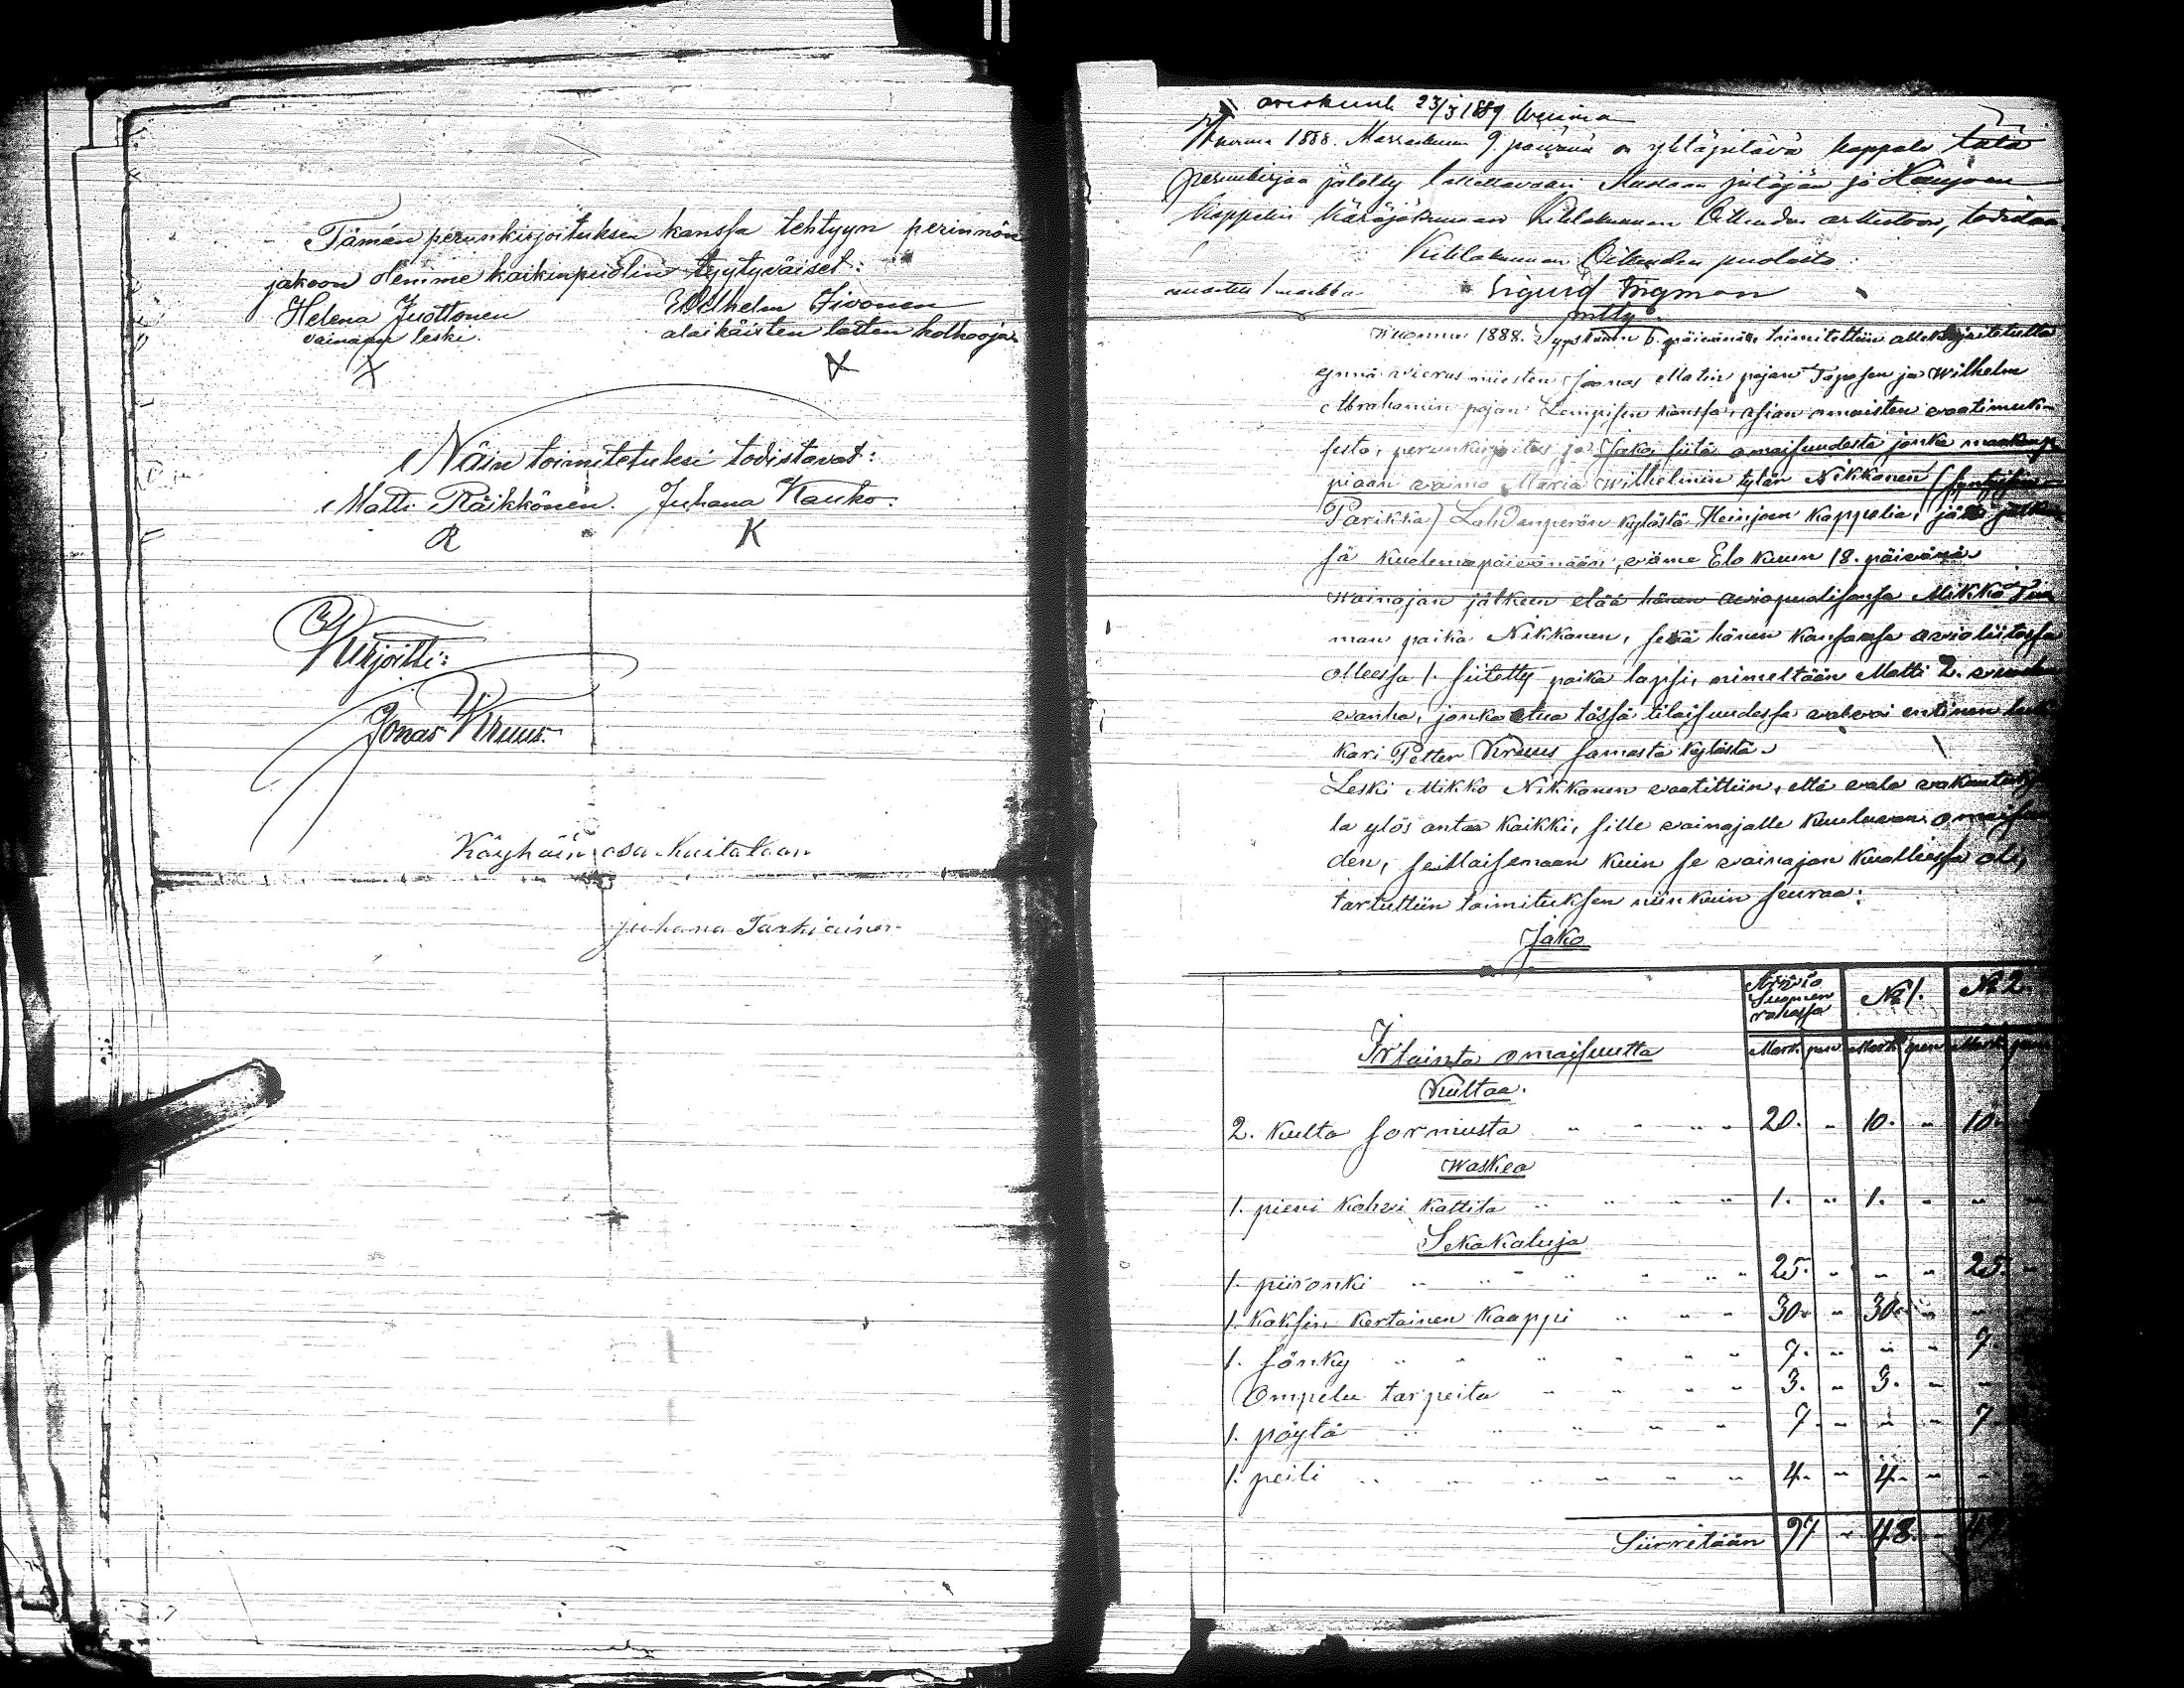 Tämän perunkirjoituksen kanssa tehtyyn perinnön
jakoon olemme kaikinpuolin tyytyväiset:
Helena Juottonen Wilhelm Iivonen
vainajan leski. alaikäisten lasten holhooja.
X X
Näin toimitetuksi todistavat:
Matti Räikkönen. Juhana Kauko.
R K
Kirjoitti:
Jonas Kruus.
Köyhäin osa kuitataan
Juhana Tarkiainen
23/3 1889
Wuonna 1888. Marraskuun 9. päivänä on yhtäpitävä kappale tätä
perunkirjaa jätetty talletettavaksi Muolaan pitäjän ja Heinjoen
kappelin Käräjäkunnan Kihlakunnan Oikeuden arkistoon, todistaa
Kihlakunnan Oikeuden puolesta:
1 markka Sigurd
Wuonna 1888. Syyskuun 6. päivänä, toimitettiin allekirjoitetulta
ynnä vieras miesten Joonas Matin pojan Taposen ja Wilhelm
Abrahamin pojan Lempisen kanssa, asian omaisten vaatimuk-
sesta, perunkirjoitus ja Jako siitä omaisuudesta jonka
piian vaimo Maria Wilhelmin tytär Nikkanen (syntyisin
Parikka) Lahdenperän kylästä Heinjoen kappelia, jätti
sä kuolemapäivänään, viime Elo kuun 18. päivänä
Wainajan jälkeen elää hänen aviopuolisonsa Mikko
man poika Nikkanen, sekä hänen kanssansa avioliitossa
olleessa 1. siitetty poika lapsi, nimeltään Matti 2. vuoden
vanha, jonka etua tässä tilaisuudessa valvoi entinen
kari Petter Kruus samasta kylästä.
Leski Mikko Nikkanen vaatittiin, että vala
la ylös antaa kaikki, sille vainajalle kuuluvan omaisuu
den, seillaisenaan kuin se vainajan kuollessa oli,
tartuttiin toimituksen niin kuin seuraa:
Jako
Arvio Suomen rahassa No 1. No 2.
Irtainta omaisuutta Mark. pen Mark. pen Mark. pen
Kultaa.
2. kulta sormusta " " " " 20. " 10. " 10.
Waskea
1. pieni kahvi kattila " " " " 1. " 1. " " "
Sekakaluja
1. piironki " " " " " " 25. " " " 25. "
1. kaksin kertainen kaappi " " " 30. " 30. " "
1. sänky " " " " " " 7. " " " 7.
Ompelu tarpeita " " " " 3. " 3. " "
1. pöytä " " " " " 7. " " " 7.
1. peili " " " " " " 4. " 4. " "
Siirretään 97 " 48. " 49